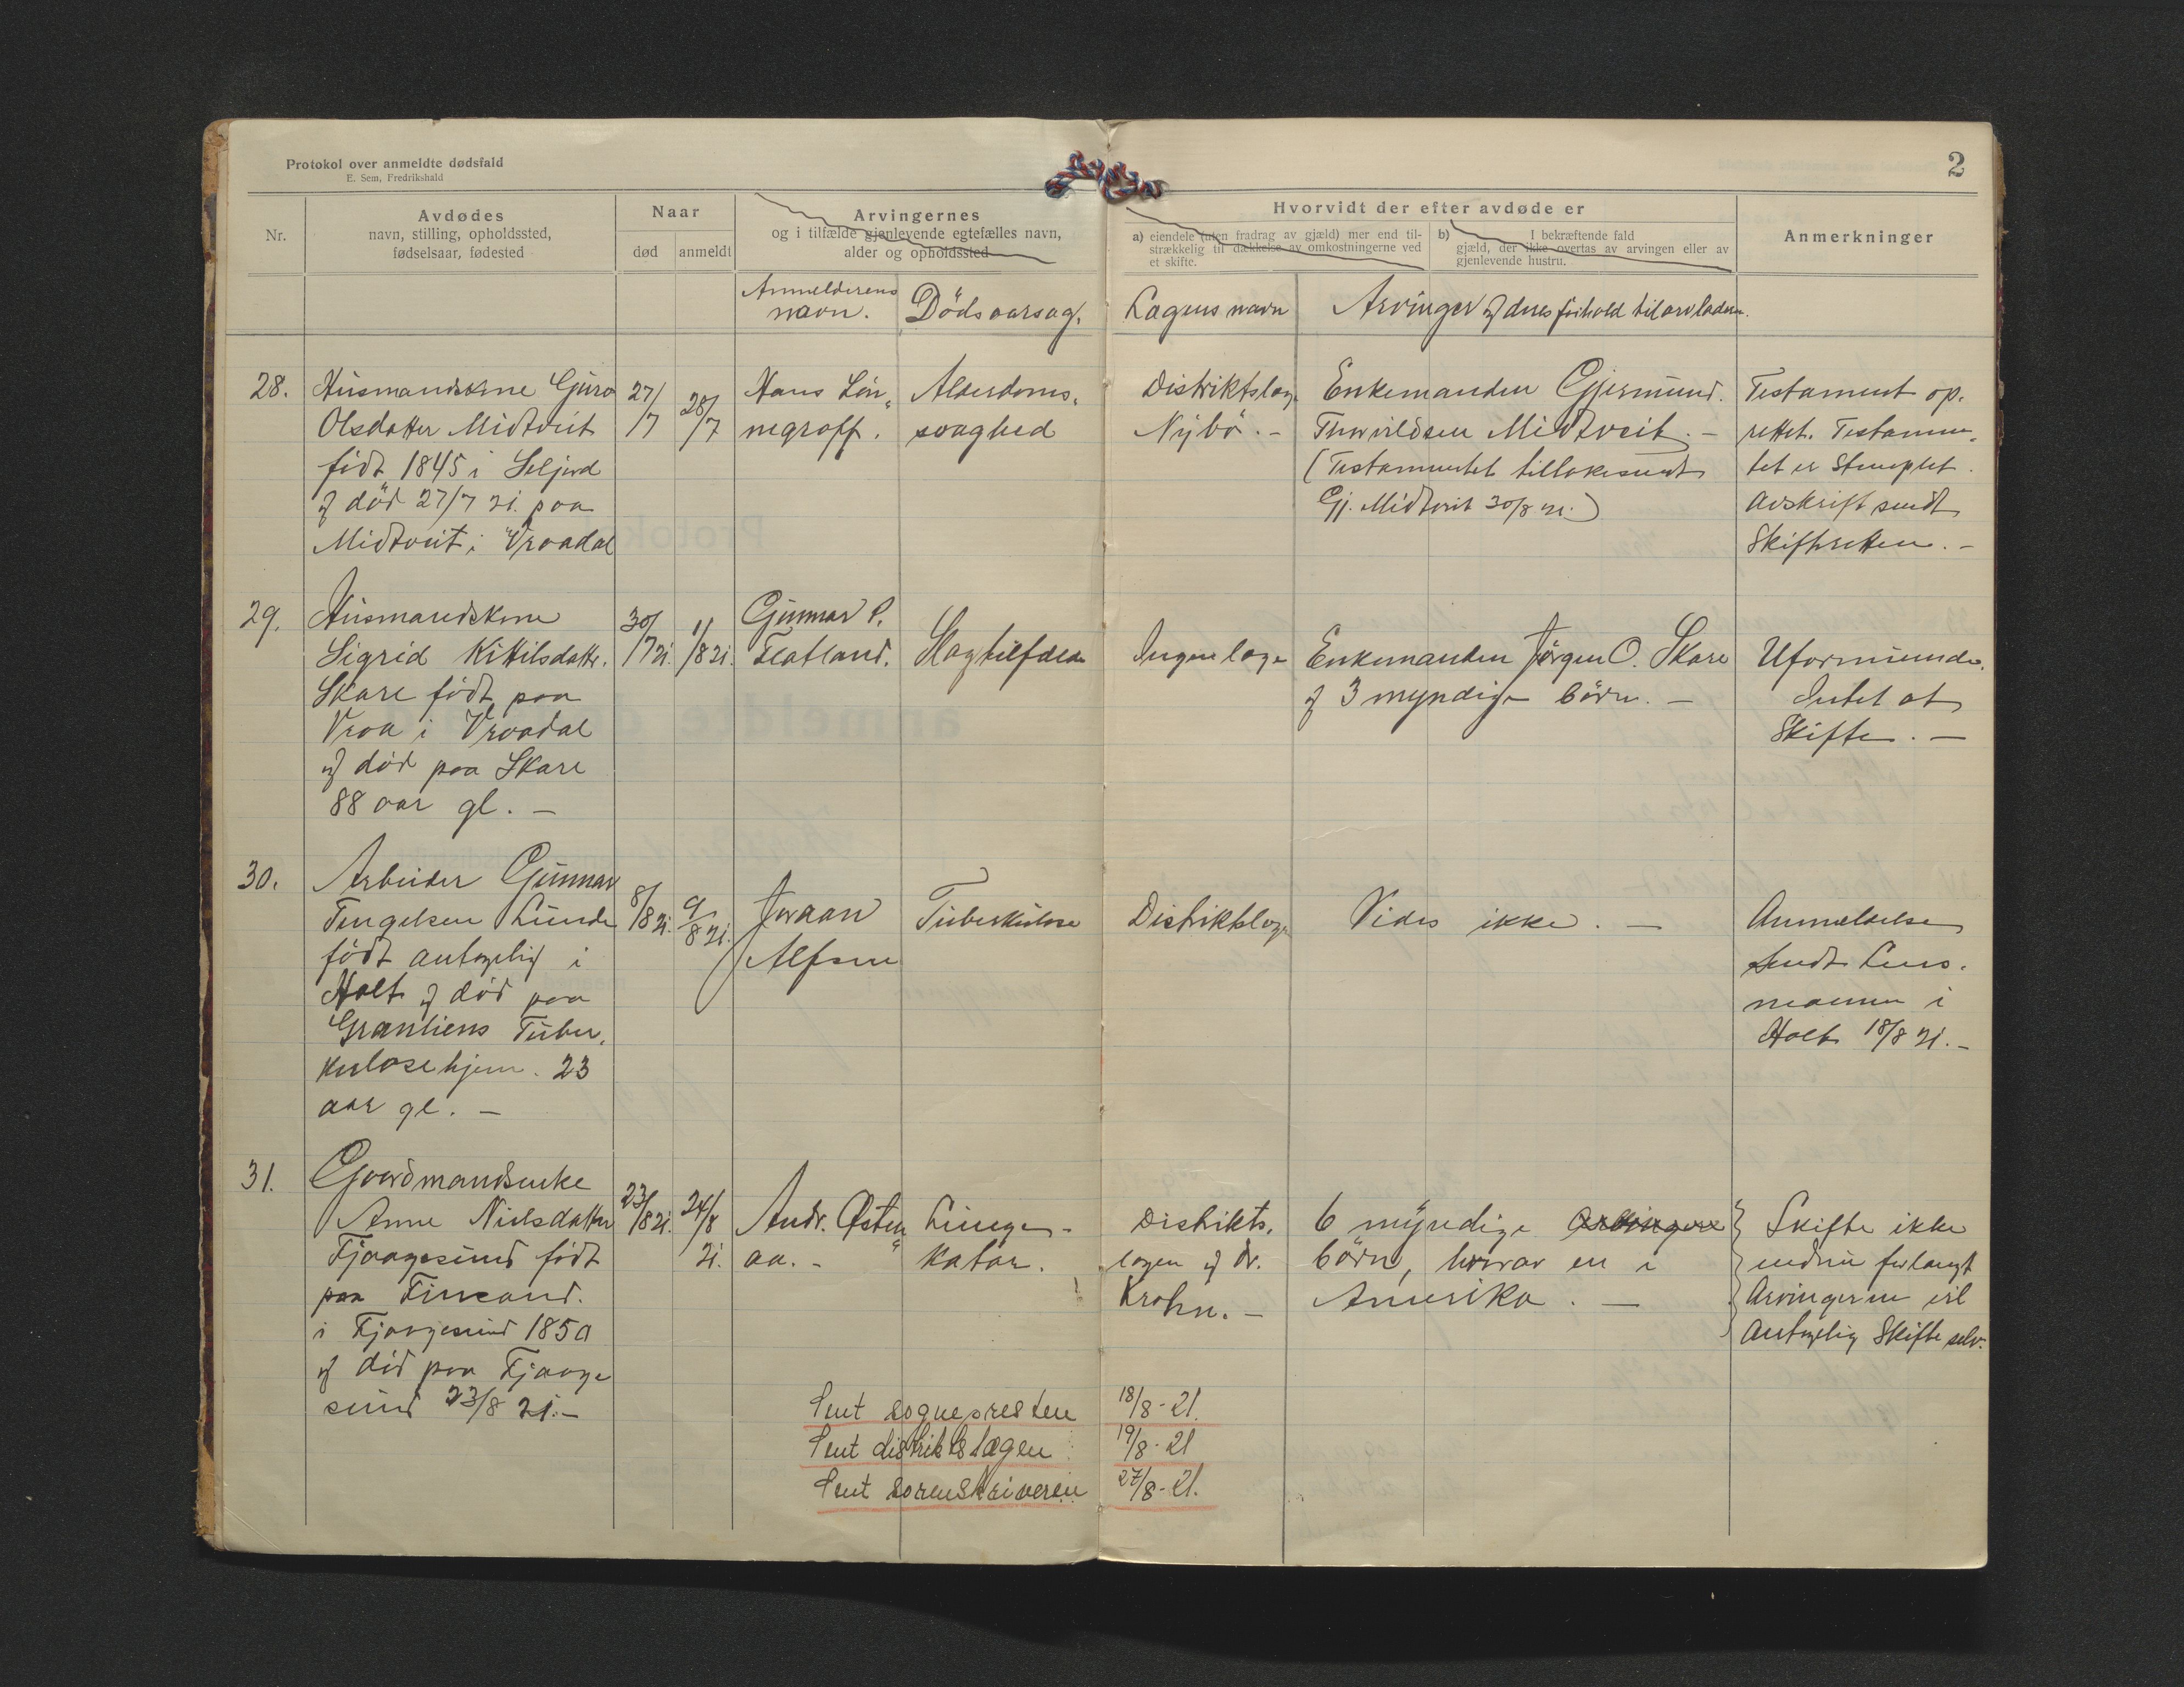 Protokol over anmeldte dødsfald
E. Sem, Fredrikshald
2
Nr.
Avdødes
navn, stilling, opholdssted,
fødselsaar, fødested
Naar
død
anmeldt
Arvingernes
og i tilfælde gjenlevende egtefælles navn,
alder og opholdssted
Hvorvidt der efter avdøde er
a) eiendele (uten fradrag av gjæld) mer end til-
strækkelig til dækkelse av omkostningerne ved
et skifte.
b) I bekræftende fald
gjæld, der ikke overtas av arvingen eller av
gjenlevende hustru.
Anmerkninger
Anmelderens
navn.
Dödsaarsag.
Lægens navn
Arvinger og deres forhold til arvladeren.
28.
Husmandskone Guro
Olsdatter Midtveit
født 1845 i Seljord
og død 27/7 21. paa
Midtveit i Vraadal
27/7
28/7
Hans Løn-
negroff.
Alderdoms-
svaghed
Distriktslæge
Nybö. -
Enkemanden Gjermund
Thorvildsen Midtveit. -
(Testamentet tilbakesendt
Gj. Midtveit 30/8 21.)
Testament op-
rettet. Testamen-
tet er stemplet.
Avskrift sendt
Skifteretten. -
29.
Husmandskone
Sigrid Kittilsdatter
Skare født paa
Vraa i Vraadal
og død paa Skare
88 aar gl. -
30/7 21.
1/8 21.
Gunnar P.
Flatland.
Slagtilfælde
Ingen læge
Enkemanden Jörgen O. Skare
og 3 myndige börn. -
Uformuende.
Intet at
Skifte. -
30.
Arbeider Gunnar
Tengelsen Lunde
født antagelig i
Holt og død paa
Granliens Tuber-
kulosehjem. 23
aar gl. -
8/8 21.
9/8 21.
Jøraan
Alfsen
Tuberkulose
Distriktslæge
Vides ikke. -
Anmeldelse
sendt Lens-
manden i
Holt 18/8 21. -
31.
Gaardmandsenke
Anne Nielsdatter
Fjaagesund født
paa
i Fjaagesund 1850
og død paa Fjaage
sund 23/8 21. -
23/8 21.
24/8
21.
Andr. Østen-
aa. -
Lunge-
katar.
Distrikts-
lægen og dr.
Krohn. -
6 myndige arvingere
börn, hvorav en i
Amerika. -
Skifte ikke
endnu forlangt
Arvingerne vil
Antagelig Skifte selv.
Sent sognepresten 18/8-21.
Sent distriktslægen 19/8-21
Sent sorenskriveren 27/8-21.